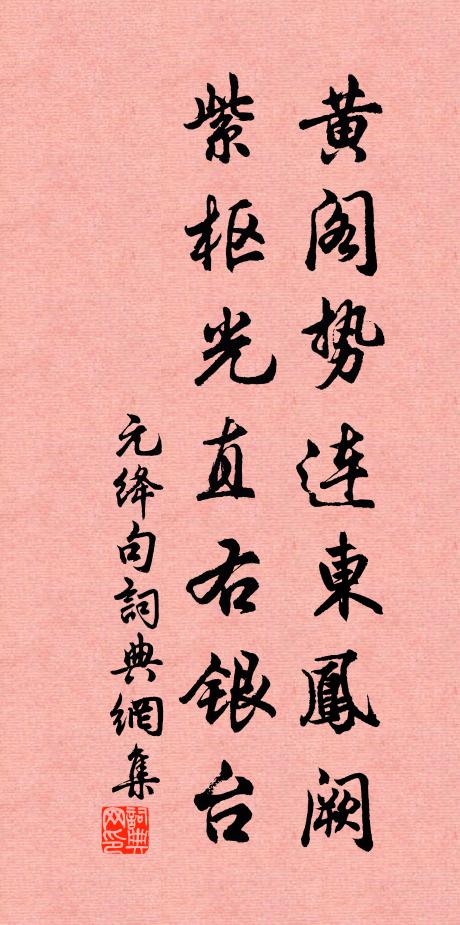 黄阁势连東鳳阙
紫枢光直右银台
元绛句詞典網集
詞典网印